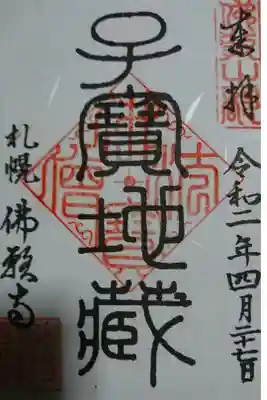 奉拝
令和二年四月二十七日
子寶地蔵
札幌 佛願寺